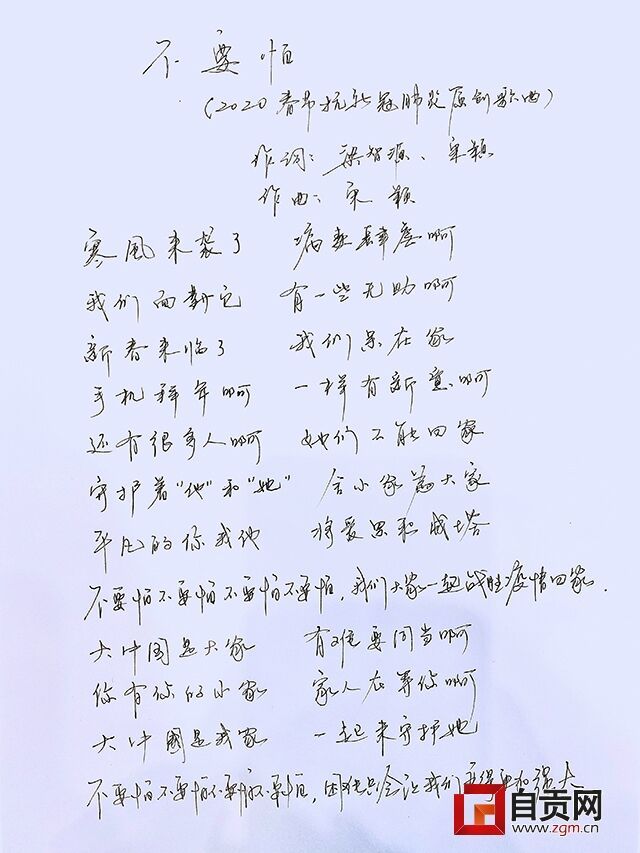 不要怕
(2020春节抗新冠肺炎原创歌曲)
作词: 梁智源、宋颖
作曲: 宋颖
寒风来袭了 病毒肆虐啊
我们面对它 有一些无助啊
新春来临了 我们呆在家
手机拜年啊 一样有新意啊
还有很多人啊 她们不能回家
守护着“他”和“她” 舍小家为大家
平凡的你我他 将爱累积成塔
不要怕不要怕不要怕不要怕,我们大家一起战胜疫情回家.
大中国是大家 有难要同当啊
你有你的小家 家人在等你啊
大中国是我家 一起来守护她
不要怕不要怕不要怕不要怕,困难只会让我们变得更加强大
自贡网
www.zgm.cn